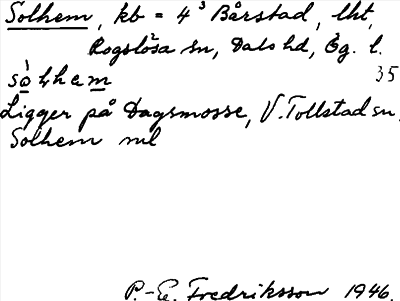 Solhem, kb = 4³ Bårstad, lht,
Rogslösa sn, Dals hd, Ög. l.
35
sòɫhem
Ligger på Dagsmosse, V. Tollstad sn,
Solhem nul
P.-E. Fredriksson 1946.